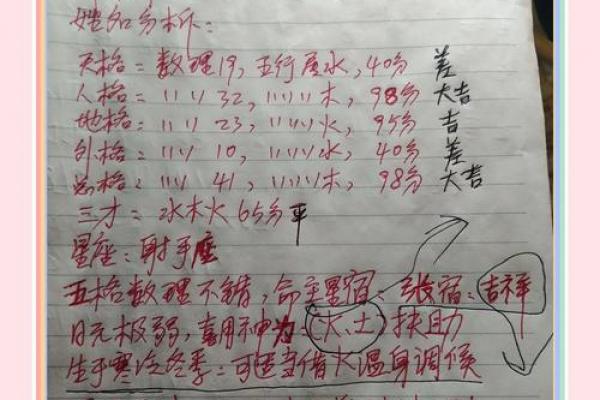 姓名分析:
天格= 数理19, 五行属水, 40分 差
人格= 〃〃 32, 〃〃木, 98分 大吉
地格: 〃〃 23, 〃〃火, 95分 吉
外格: 〃〃 10, 〃〃水, 40分 差
总格: 〃〃 41, 〃〃木, 98分 大吉
三才= 水木火 65分 平
星座: 射手座
五格数理不错, 命主星宿: 张宿: 吉祥
日元极弱, 喜用神为: (火、土) 扶助
生于寒冷冬季: 可适宜借火温身调候